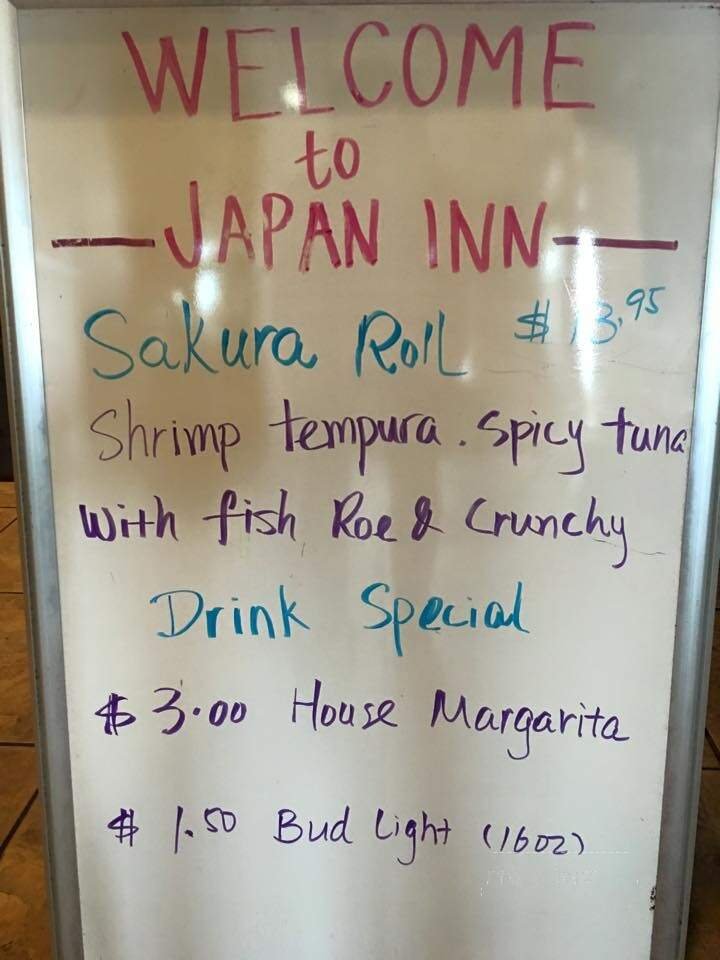 WELCOME
to
— JAPAN INN —
Sakura Roll $13.95
Shrimp tempura. Spicy tuna
with fish Roe & Crunchy
Drink Special
$3.00 House Margarita
$1.50 Bud Light (16oz)